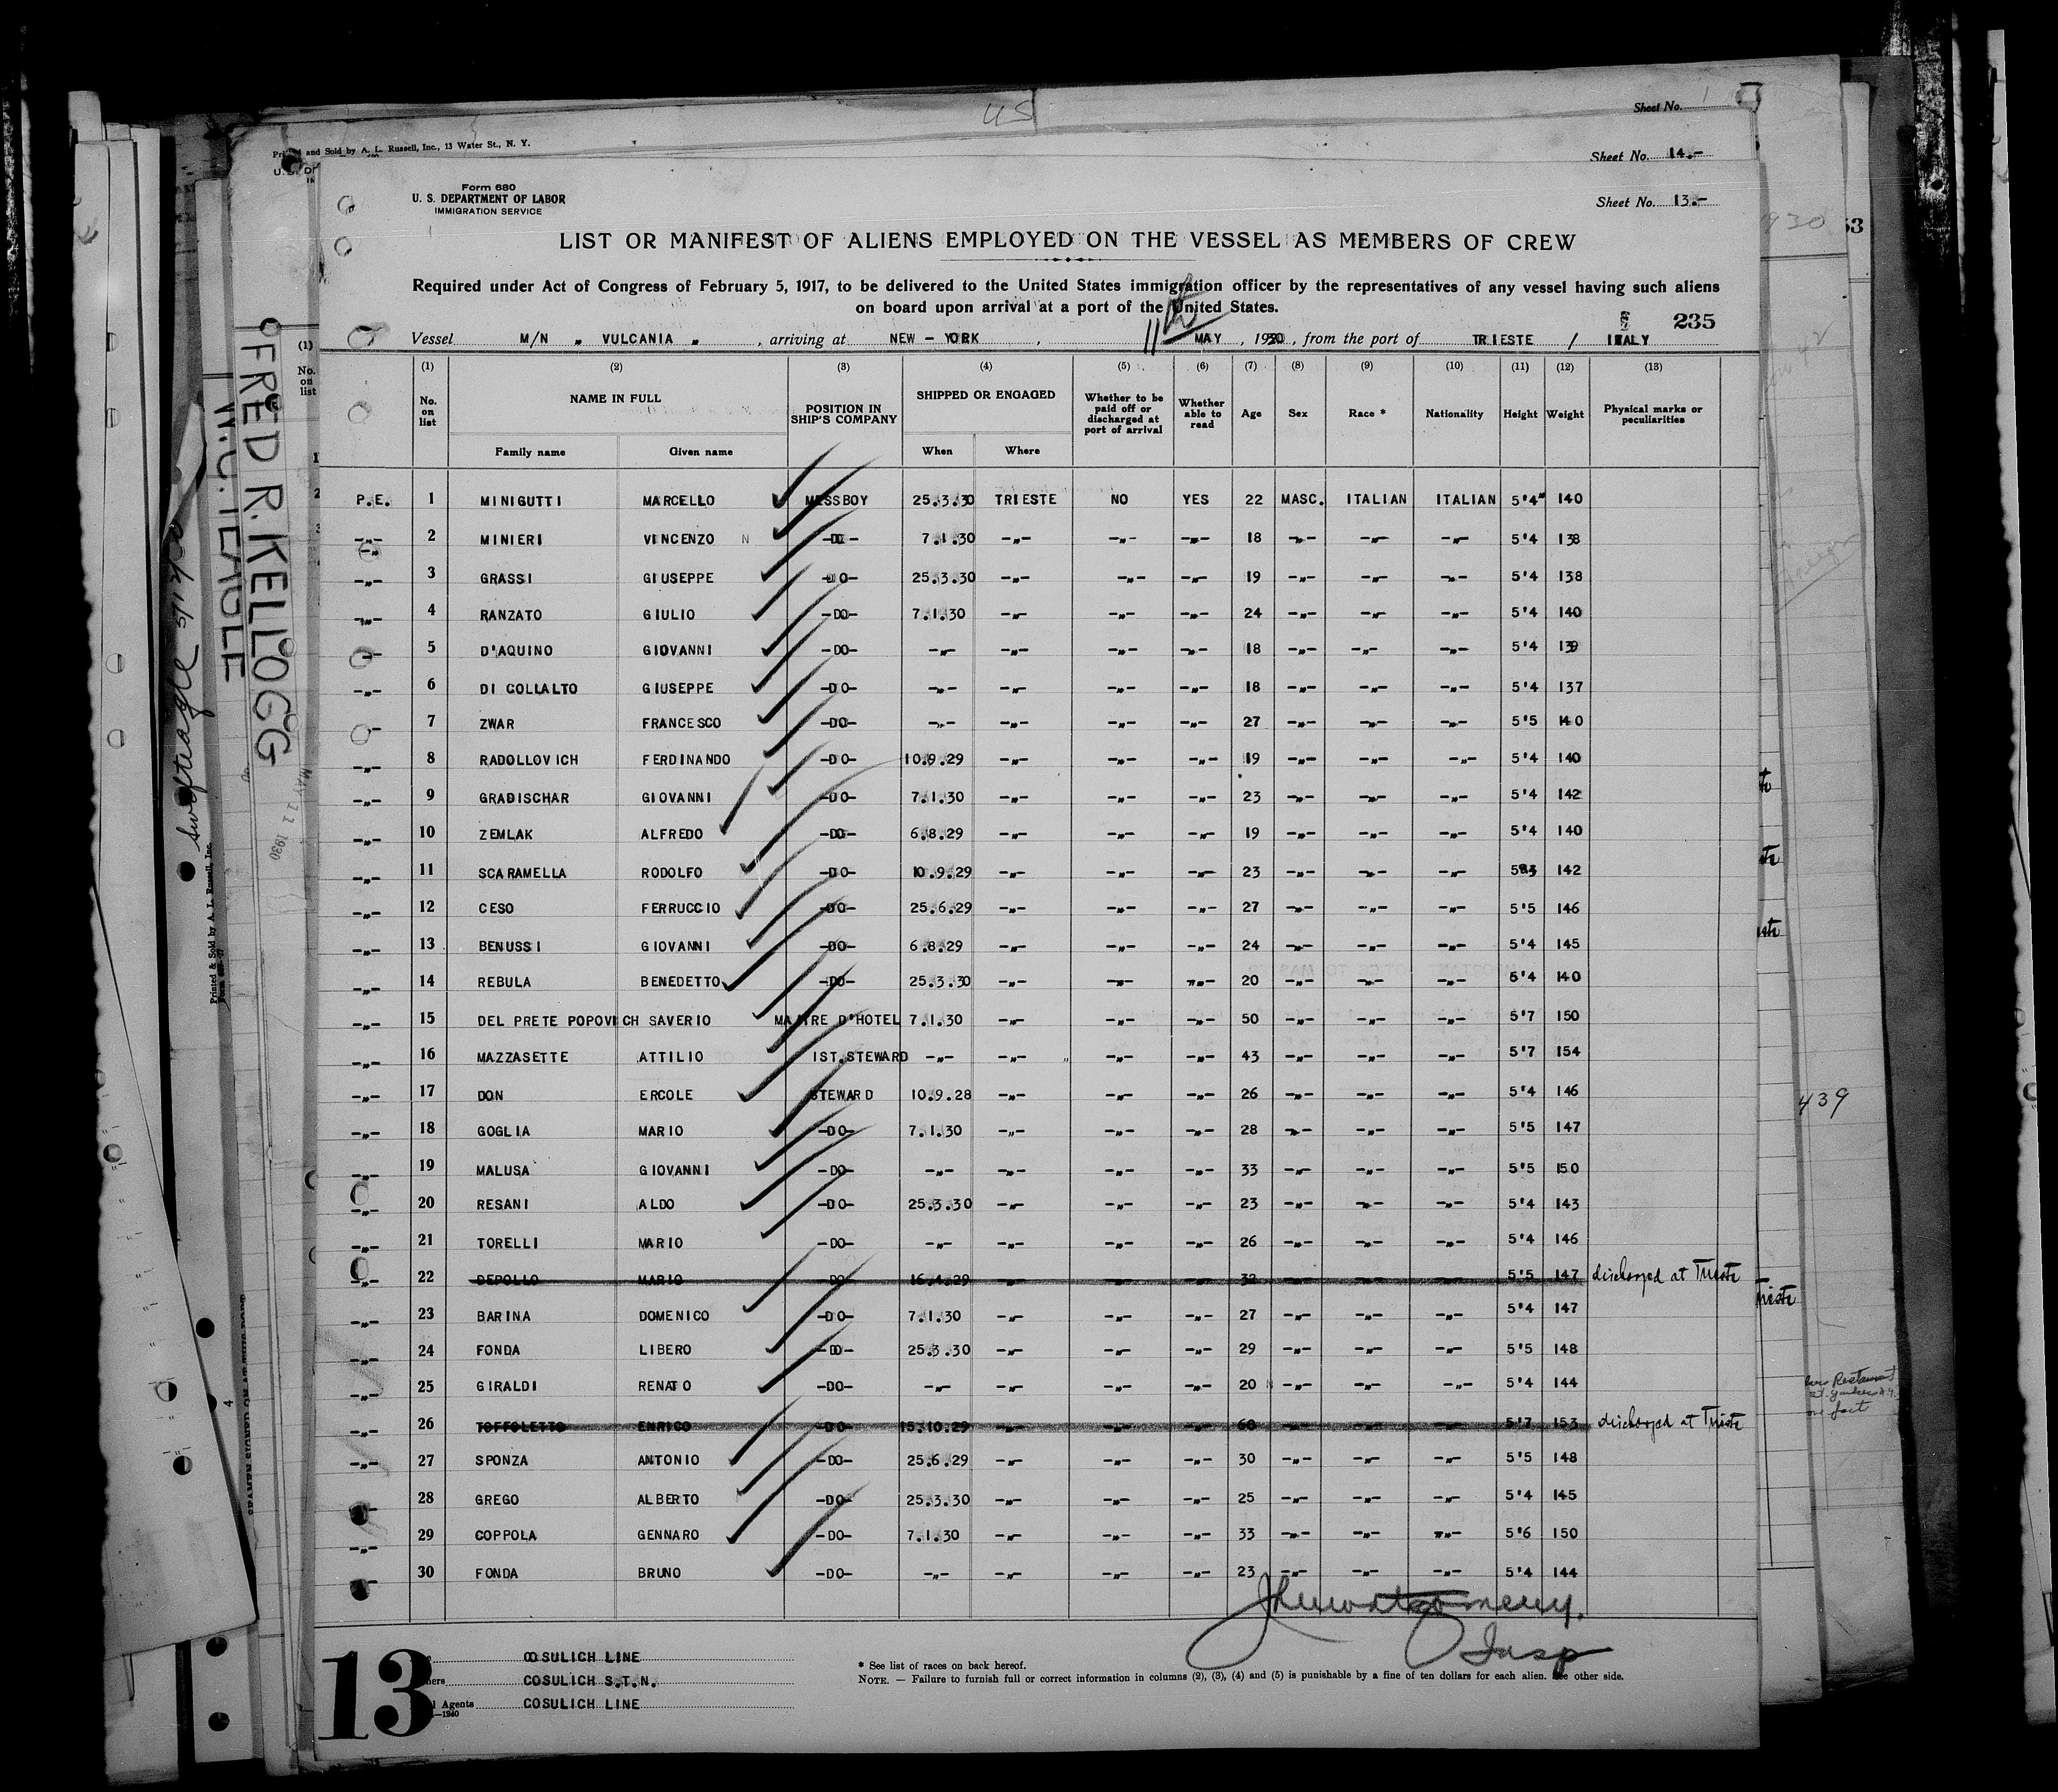 US
Sheet No. 1
Printed and Sold by A. L. Russell, Inc., 13 Water St., N. Y.
Sheet No. 14.-
Form 680
U. S. DEPARTMENT OF LABOR
IMMIGRATION SERVICE
Sheet No. 13.-
LIST OR MANIFEST OF ALIENS EMPLOYED ON THE VESSEL AS MEMBERS OF CREW
Required under Act of Congress of February 5, 1917, to be delivered to the United States immigration officer by the representatives of any vessel having such aliens
on board upon arrival at a port of the United States.
235
Vessel M/N „ VULCANIA „ , arriving at NEW - YORK , 11th MAY , 1930 , from the port of TRIESTE / ITALY
(1) (2) (3) (4) (5) (6) (7) (8) (9) (10) (11) (12) (13)
No. on list NAME IN FULL POSITION IN SHIP'S COMPANY SHIPPED OR ENGAGED Whether to be paid off or discharged at port of arrival Whether able to read Age Sex Race * Nationality Height Weight Physical marks or peculiarities
Family name Given name When Where
P.E. 1 MINIGUTTI MARCELLO MESSBOY 25.3.30 TRIESTE NO YES 22 MASC. ITALIAN ITALIAN 5'4" 140
-„- 2 MINIERI VINCENZO N -DO- 7.1.30 -„- -„- -„- 18 -„- -„- -„- 5'4 138
-„- 3 GRASSI GIUSEPPE -DO- 25.3.30 -„- -„- -„- 19 -„- -„- -„- 5'4 138
-„- 4 RANZATO GIULIO -DO- 7.1.30 -„- -„- -„- 24 -„- -„- -„- 5'4 140
-„- 5 D'AQUINO GIOVANNI -DO- -„- -„- -„- -„- 18 -„- -„- -„- 5'4 139
-„- 6 DI COLLALTO GIUSEPPE -DO- -„- -„- -„- -„- 18 -„- -„- -„- 5'4 137
-„- 7 ZWAR FRANCESCO -DO- -„- -„- -„- -„- 27 -„- -„- -„- 5'5 140
-„- 8 RADOLLOVICH FERDINANDO -DO- 10.9.29 -„- -„- -„- 19 -„- -„- -„- 5'4 140
-„- 9 GRADISCHAR GIOVANNI -DO- 7.1.30 -„- -„- -„- 23 -„- -„- -„- 5'4 142
-„- 10 ZEMLAK ALFREDO -DO- 6.8.29 -„- -„- -„- 19 -„- -„- -„- 5'4 140
-„- 11 SCARAMELLA RODOLFO -DO- 10.9.29 -„- -„- -„- 23 -„- -„- -„- 142
-„- 12 CESO FERRUCCIO -DO- 25.6.29 -„- -„- -„- 27 -„- -„- -„- 5'5 146
-„- 13 BENUSSI GIOVANNI -DO- 6.8.29 -„- -„- -„- 24 -„- -„- -„- 5'4 145
-„- 14 REBULA BENEDETTO -DO- 25.3.30 -„- -„- -„- 20 -„- -„- -„- 5'4 140
-„- 15 DEL PRETE POPOVICH SAVERIO MAITRE D'HOTEL 7.1.30 -„- -„- -„- 50 -„- -„- -„- 5'7 150
-„- 16 MAZZASETTE ATTILIO IST.STEWARD -„- -„- -„- -„- 43 -„- -„- -„- 5'7 154
-„- 17 DON ERCOLE STEWARD 10.9.28 -„- -„- -„- 26 -„- -„- -„- 5'4 146
-„- 18 GOGLIA MARIO -DO- 7.1.30 -„- -„- -„- 28 -„- -„- -„- 5'5 147
-„- 19 MALUSA GIOVANNI -DO- -„- -„- -„- -„- 33 -„- -„- -„- 5'5 150
-„- 20 RESANI ALDO -DO- 25.3.30 -„- -„- -„- 23 -„- -„- -„- 5'4 143
-„- 21 TORELLI MARIO -DO- -„- -„- -„- -„- 26 -„- -„- -„- 5'4 146
-„- 22 DEPOLLO MARIO -DO- 16.4.29 -„- -„- -„- 32 -„- -„- -„- 5'5 147 discharged at Trieste
-„- 23 BARINA DOMENICO -DO- 7.1.30 -„- -„- -„- 27 -„- -„- -„- 5'4 147
-„- 24 FONDA LIBERO -DO- 25.3.30 -„- -„- -„- 29 -„- -„- -„- 5'5 148
-„- 25 GIRALDI RENATO -DO- -„- -„- -„- -„- 20 -„- -„- -„- 5'4 144
-„- 26 TOFFOLETTO ENRICO -DO- 15.10.29 -„- -„- -„- 60 -„- -„- -„- 5'7 153 discharged at Trieste
-„- 27 SPONZA ANTONIO -DO- 25.6.29 -„- -„- -„- 30 -„- -„- -„- 5'5 148
-„- 28 GREGO ALBERTO -DO- 25.3.30 -„- -„- -„- 25 -„- -„- -„- 5'4 145
-„- 29 COPPOLA GENNARO -DO- 7.1.30 -„- -„- -„- 33 -„- -„- -„- 5'6 150
-„- 30 FONDA BRUNO -DO- -„- -„- -„- -„- 23 -„- -„- -„- 5'4 144
Insp
COSULICH LINE
COSULICH S.T.N.
Agents COSULICH LINE
13
* See list of races on back hereof.
NOTE. — Failure to furnish full or correct information in columns (2), (3), (4) and (5) is punishable by a fine of ten dollars for each alien. See other side.
FRED R. KELLOGG
W.C. TEAGLE
MAY 11 1930
Printed & Sold by A. L. Russell, Inc.
439